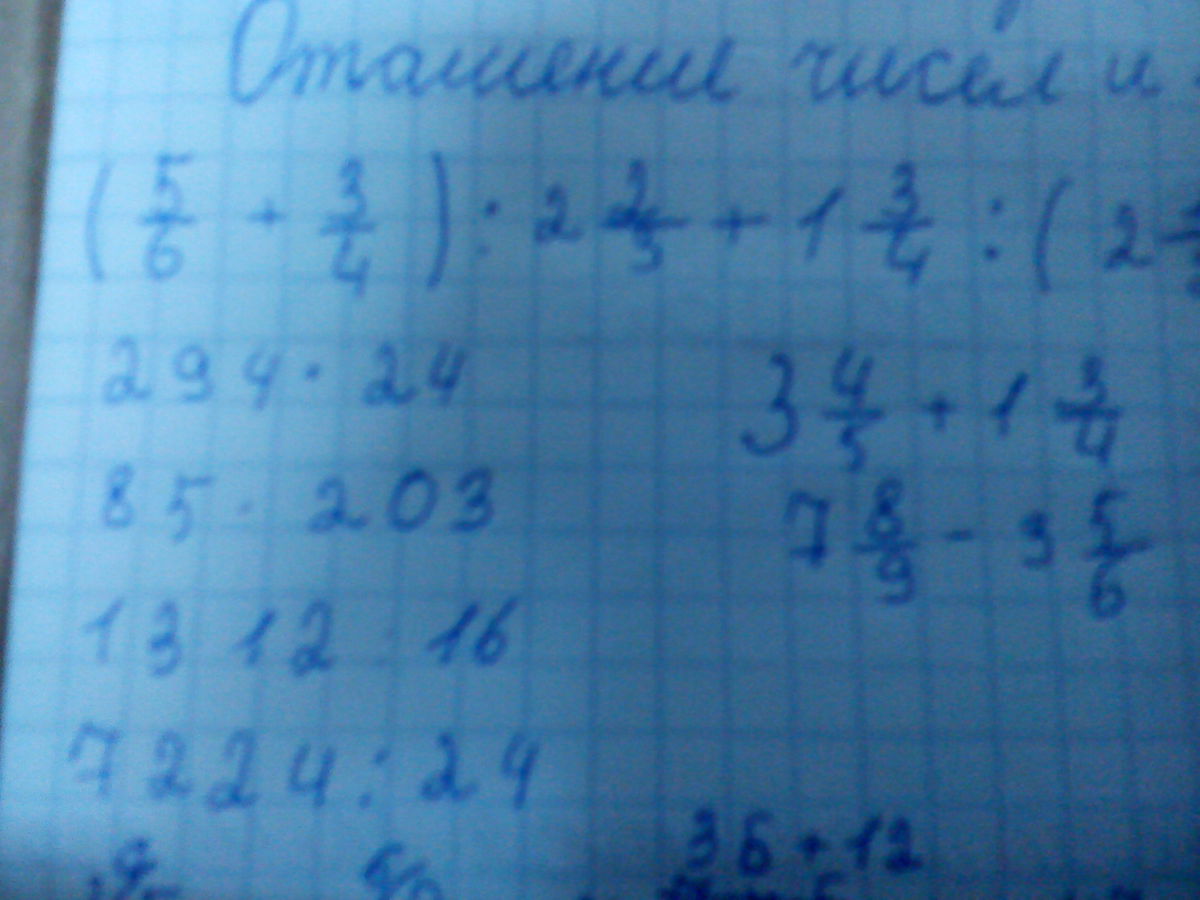 Оташение чисел и
(5/6 + 3/4) : 2 2/3 + 1 3/4 : (2
294 · 24
3 4/5 + 1 3/4
85 · 203
7 8/9 - 3 5/6
1312 : 16
7224 : 24
36 + 12